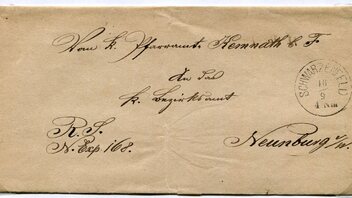 Vom k. Pfarramt Kemnath b. F.
An das
k. Bezirksamt
R. S.
N. Exp 168.
Neunburg v/W.
SCHWARZENFELD
18
9
4 Nm